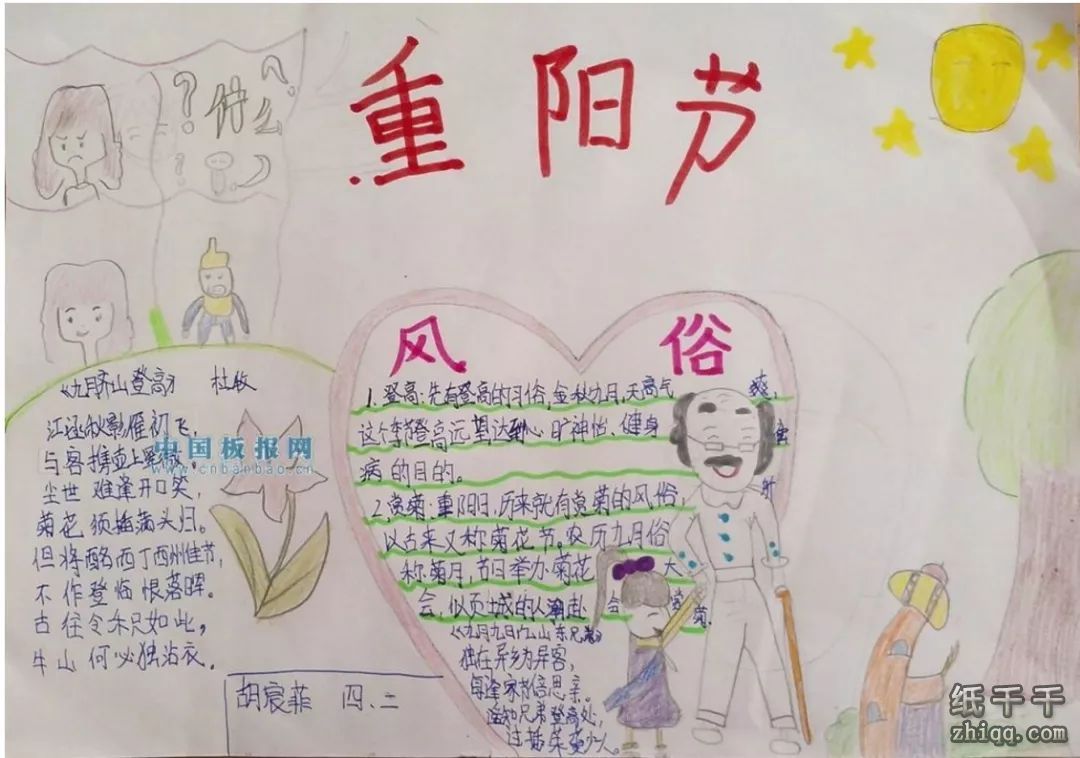 重阳节
？什么？
风俗
1.登高：先有登高的习俗，金秋九月，天高气爽，
这个季节登高远望达到心旷神怡、健身
病的目的。
2.赏菊：重阳日，历来就有赏菊的风俗，
以古来又称菊花节。农历九月俗
称菊月，节日举办菊花大
会，倾城的人潮赴会赏菊。
《九月九日忆山东兄弟》
独在异乡为异客，
每逢家节倍思亲。
遥知兄弟登高处，
茱萸少人。
《九月齐山登高》 杜牧
江涵秋影雁初飞，
与客携壶上
尘世难逢开口笑，
菊花须插满头归。
但将酩酊州佳节，
不作登临恨落晖。
古往今来只如此，
牛山何必独沾衣。
胡宸菲 四.二
中国板报网
www.cnbanbao.cn
纸千千
zhiqq.com